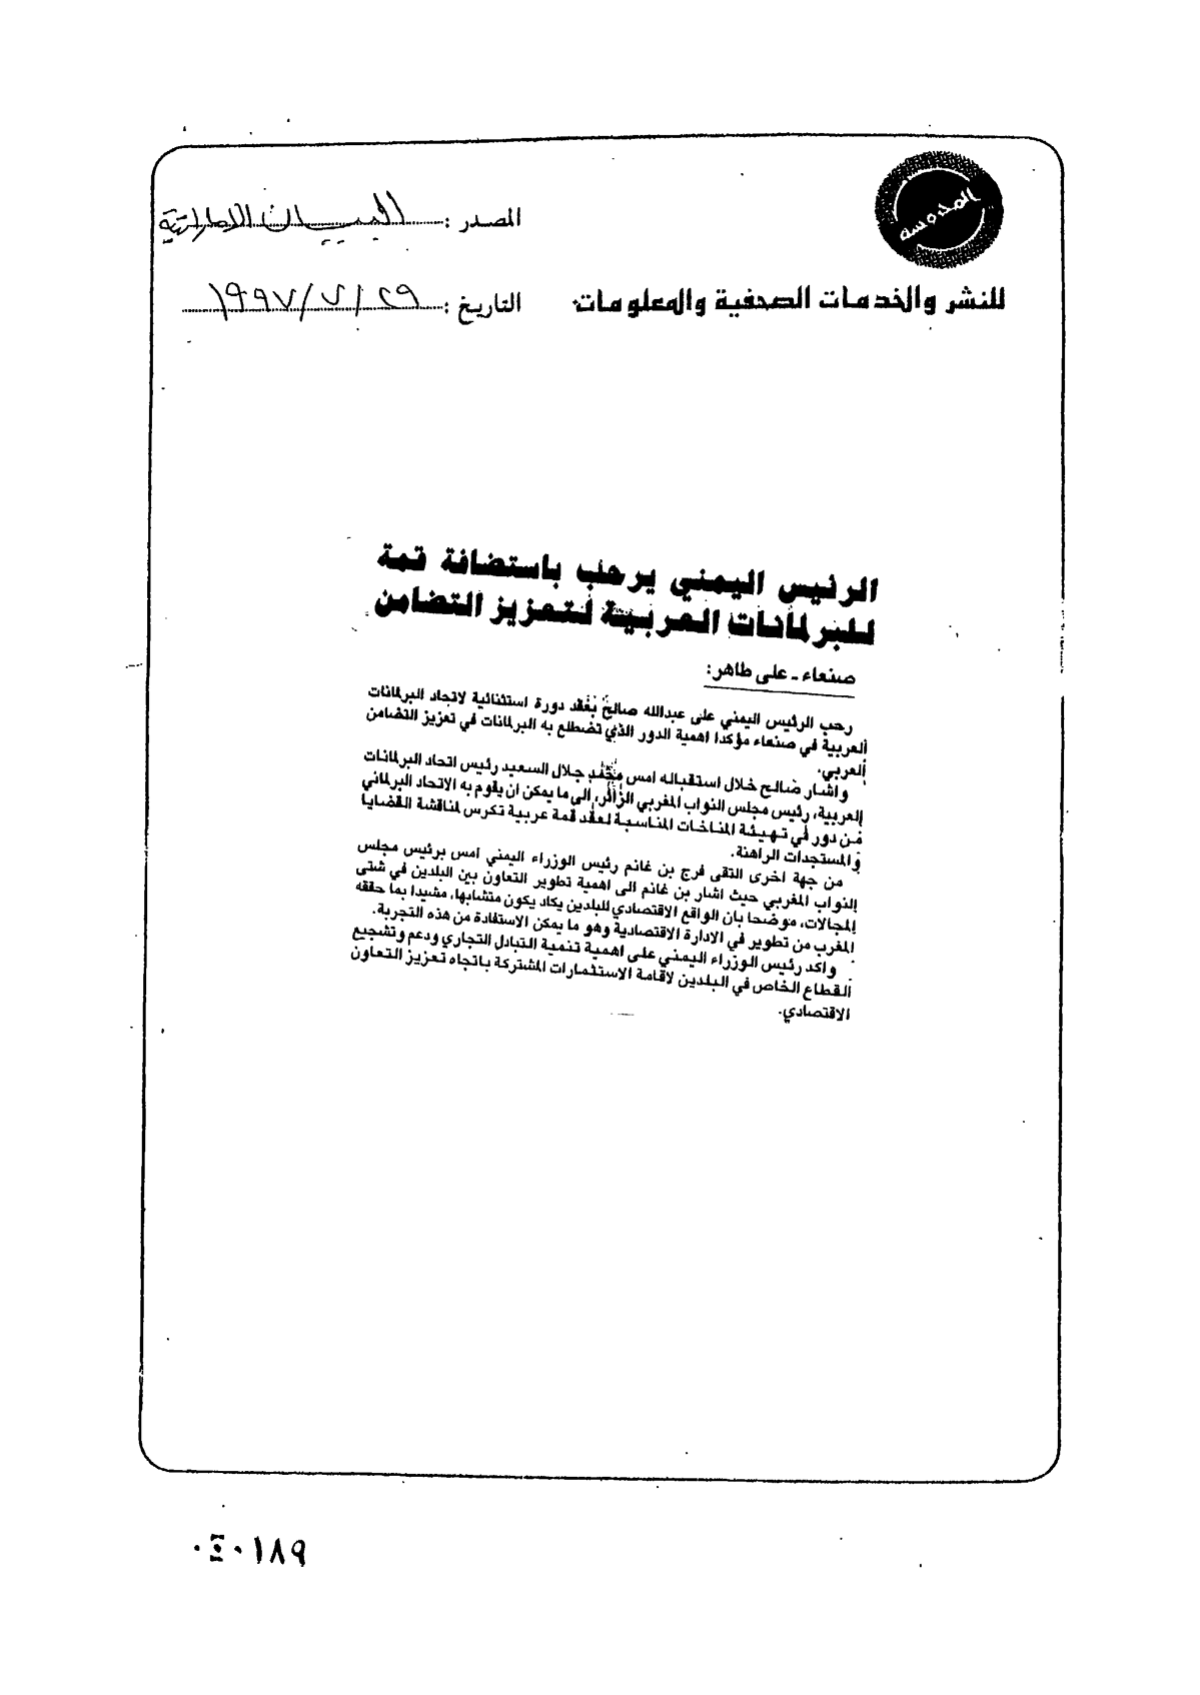 المصدر : البيان الإماراتية
للنشر والخدمات الصحفية والمعلومات
التاريخ : ٢٩ / ٧ / ١٩٩٧
الرئيس اليمني يرحب باستضافة قمة
للبرلمانات العربية لتعزيز التضامن
صنعاء ـ على طاهر:
رحب الرئيس اليمني على عبدالله صالح بعقد دورة استثنائية لاتحاد البرلمانات
العربية في صنعاء مؤكدا اهمية الدور الذي تضطلع به البرلمانات في تعزيز التضامن
العربي.
واشار صالح خلال استقباله امس محمد جلال السعيد رئيس اتحاد البرلمانات
العربية، رئيس مجلس النواب المغربي الزائر، الى ما يمكن ان يقوم به الاتحاد البرلماني
من دور في تهيئة المناخات المناسبة لعقد قمة عربية تكرس لمناقشة القضايا
والمستجدات الراهنة.
من جهة اخرى التقى فرج بن غانم رئيس الوزراء اليمني امس برئيس مجلس
النواب المغربي حيث اشار بن غانم الى اهمية تطوير التعاون بين البلدين في شتى
المجالات، موضحا بان الواقع الاقتصادي للبلدين يكاد يكون متشابها، مشيدا بما حققه
المغرب من تطوير في الادارة الاقتصادية وهو ما يمكن الاستفادة من هذه التجربة.
واكد رئيس الوزراء اليمني على اهمية تنمية التبادل التجاري ودعم وتشجيع
القطاع الخاص في البلدين لاقامة الاستثمارات المشتركة باتجاه تعزيز التعاون
الاقتصادي.